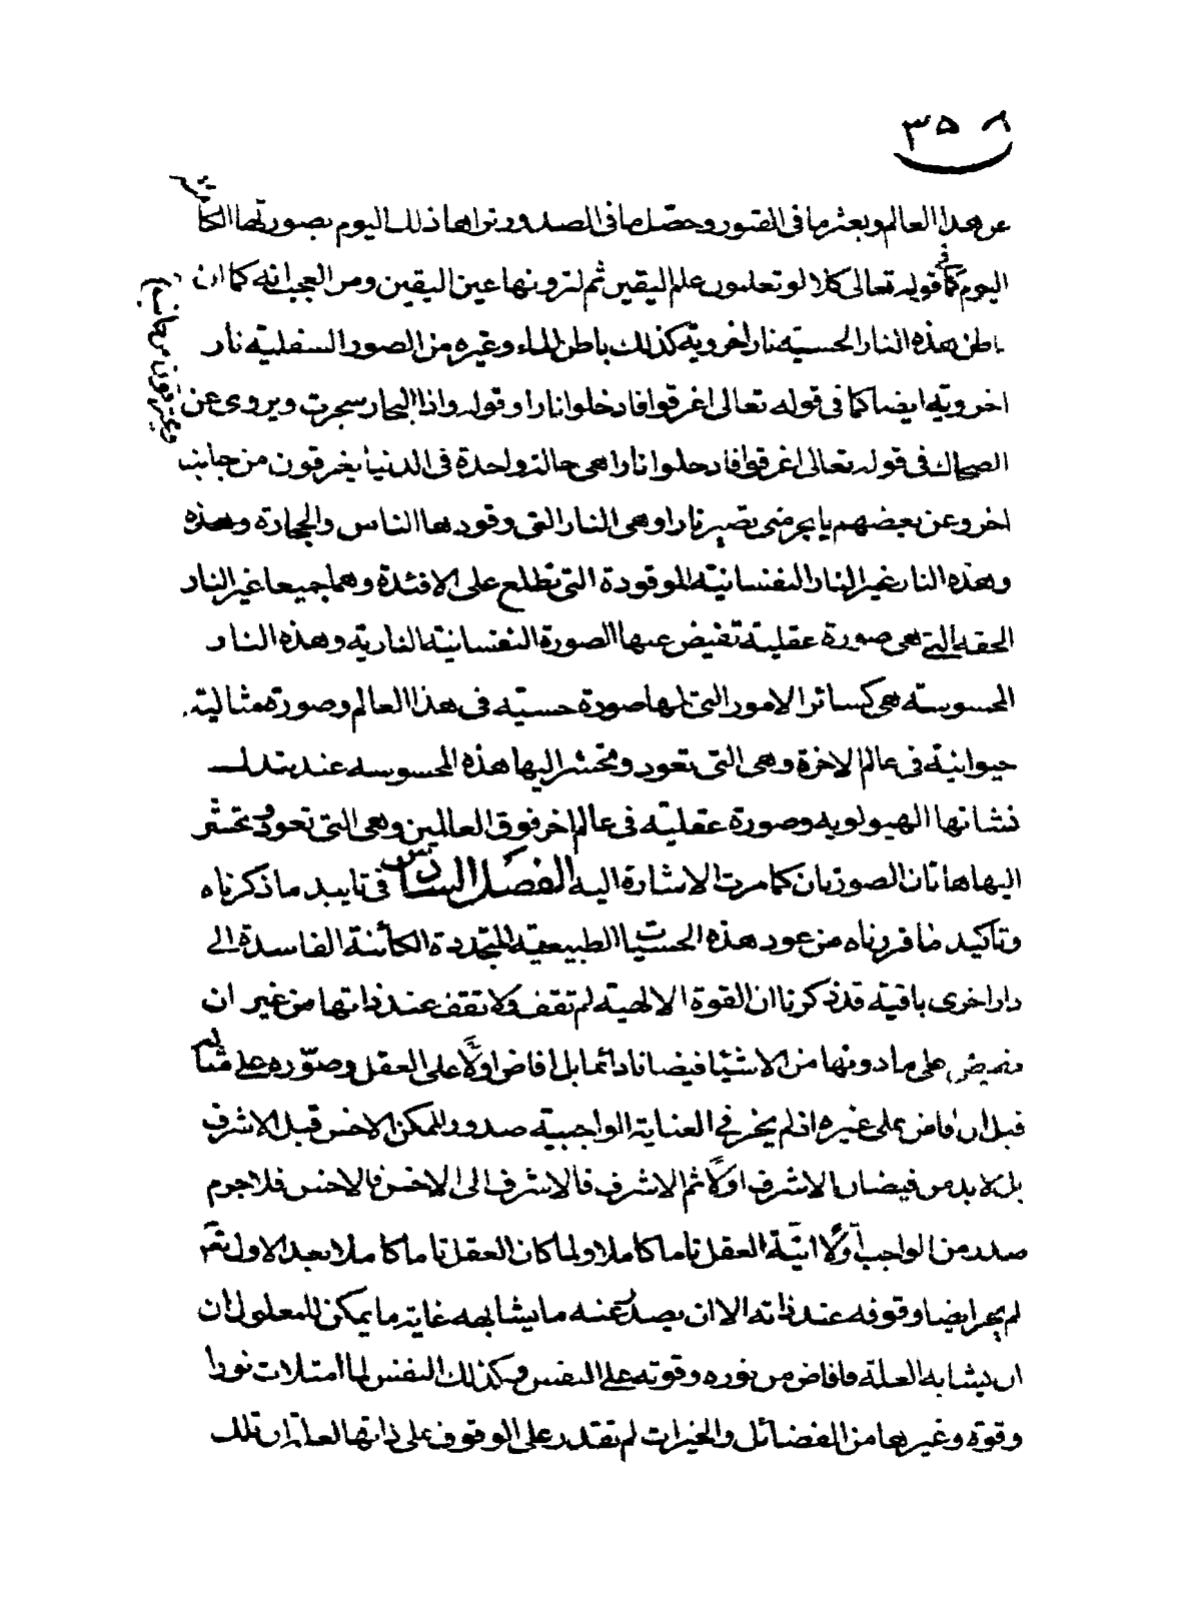 ۳۵۸
عن هذا العالم وبعثر ما فی القبور وحصل ما فی الصدور تراها ذلك اليوم بصورتها الكا
منة
اليوم كما فی قوله تعالى كلا لو تعلمون علم اليقين ثم لترونها عين اليقين ومن العجب انه كما ان
باطن هذه النار الحسية نار اخروية كذلك باطن الماء وغيره من الصور السفلية نار
اخروية ايضا كما فی قوله تعالى اغرقوا فادخلوا نارا وقوله واذا البحار سجرت ويروى عن
الضحاك فی قوله تعالى اغرقوا فادخلوا نارا هی حالة واحدة فی الدنيا يغرقون من جانب
ويحترقون من جانب
اخر وعن بعضهم يا بحر متى تصير نارا وهی النار التی وقودها الناس والحجارة وهذه
وهذه النار غير النار النفسانية الموقودة التی تطلع على الافئدة وهما جميعا غير النار
الحقه التی هی صورة عقلية تفيض عنها الصورة النفسانية النارية وهذه النار
المحسوسة هی كسائر الامور التی لها صورة حسية فی هذا العالم وصورة مثالية
حيوانية فی عالم الاخرة وهی التی تعود وتحشر اليها هذه المحسوسه عند تبدل
نشاتها الهيولويه وصورة عقلية فی عالم اخر فوق العالمين وهی التی تعود وتحشر
اليها هاتان الصورتان كما مرت الاشارة اليه الفصل السادس فی تاييد ما ذكرناه
وتاكيد ما قررناه من عود هذه الحسيات الطبيعية المتجددة الكائنة الفاسدة الى
دار اخرى باقية قد ذكرنا ان القوة الالهية لم تقف ولا تقف عند ذاتها من غير ان
تفيض على ما دونها من الاشيا فيضانا دائما بل افاض اولا على العقل وصوّره على مثاله
قبل ان افاض على غيره اذ لم يجز فی العناية الواجبية صدور الممكن الاخس قبل الاشرف
بل لا بد من فيضان الاشرف اولا ثم الاشرف فالاشرف الى الاخس فالاخس فلا جرم
صدر من الواجب اولا انية العقل تاما كاملا ولما كان العقل تاما كاملا بعد الاول ثم
لم يجز ايضا وقوفه عند ذاته الا ان يصدر عنه ما يشابهه غاية ما يمكن للمعلول ان
ان يشابه العلة فافاض من نوره وقوته على النفس وكذلك النفس لما امتلات نورا
وقوة وغيرها من الفضائل والخيرات لم تقتدر على الوقوف على ذاتها لعلة ان تلك